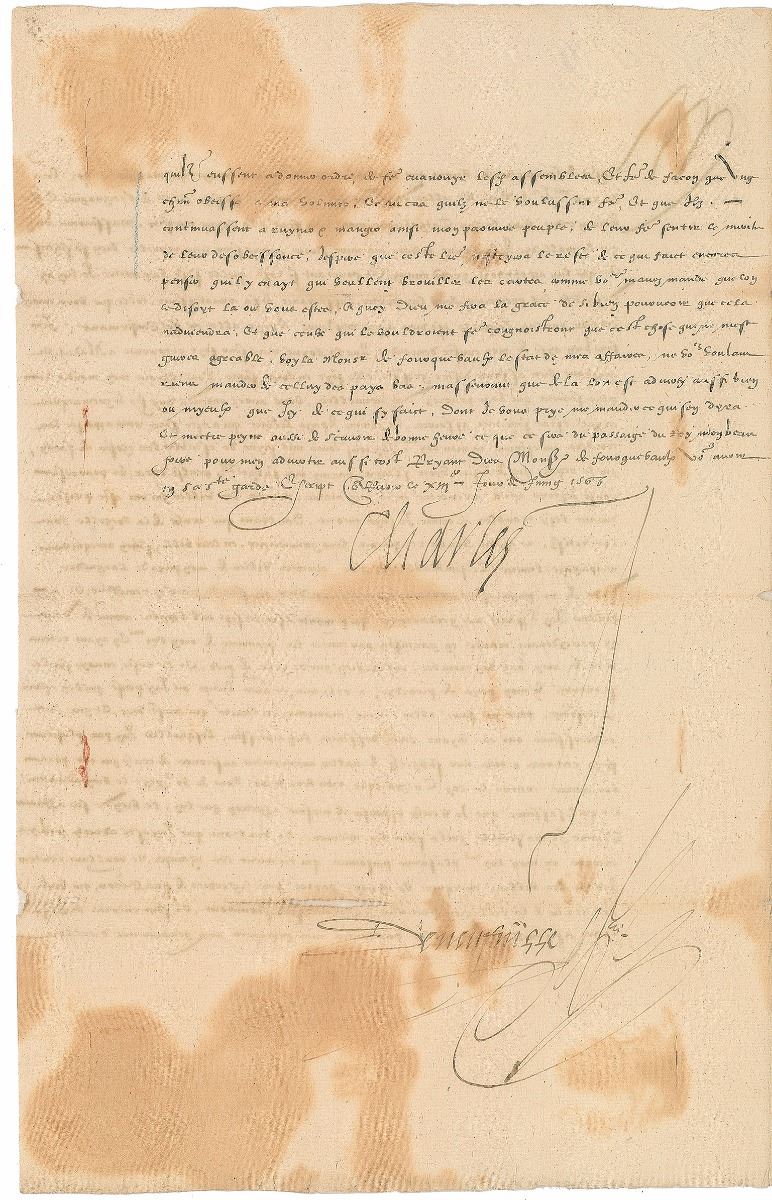 quilz eussent a donner ordre, de fe. esvanouyr lesd. assemblees, Et fe. de facon que ung
chun obeisse a ma volunte, Et en cas quilz ne le voulussent fe., Et que Ilz
continuassent a ruyner & manger ainsi mon pauvre peuple, de leur fe. sentir le merite
de leur desobeissance, Jespere que ceste lre le reste & ce qui faict encores
penser quil y en ayt qui veullent brouiller les cartes comme vo. mavez mande que lon
le disoyt la ou vous estes, A quoy Dieu me fera la grace de si bien pourveoir que cela
nadviendra, Et que ceulx qui le vouldroient fe. congnoistront que cest chose qui ne mest
gueres agreable, Voyla Monsr de fourquevaulx lestat de mes affaires, ne vo. voulant
riens mander de celluy des pays bas, masseurant que de la lon est adverty aussi bien
ou myeulx que Icy de ce qui sy faict, Dont Je vous prye me mander ce qui sen dyra
Et mectre peyne aussi de scavoir de bonne heure ce que ce sera du passaige du Roy mon beau
frere pour men advertir aussi tost Pryant Dieu Monsr de fourquevaulx vo. avoir
en sa ste garde Escript le XIIIe Jour de Juing 1567
Charles
De neufville